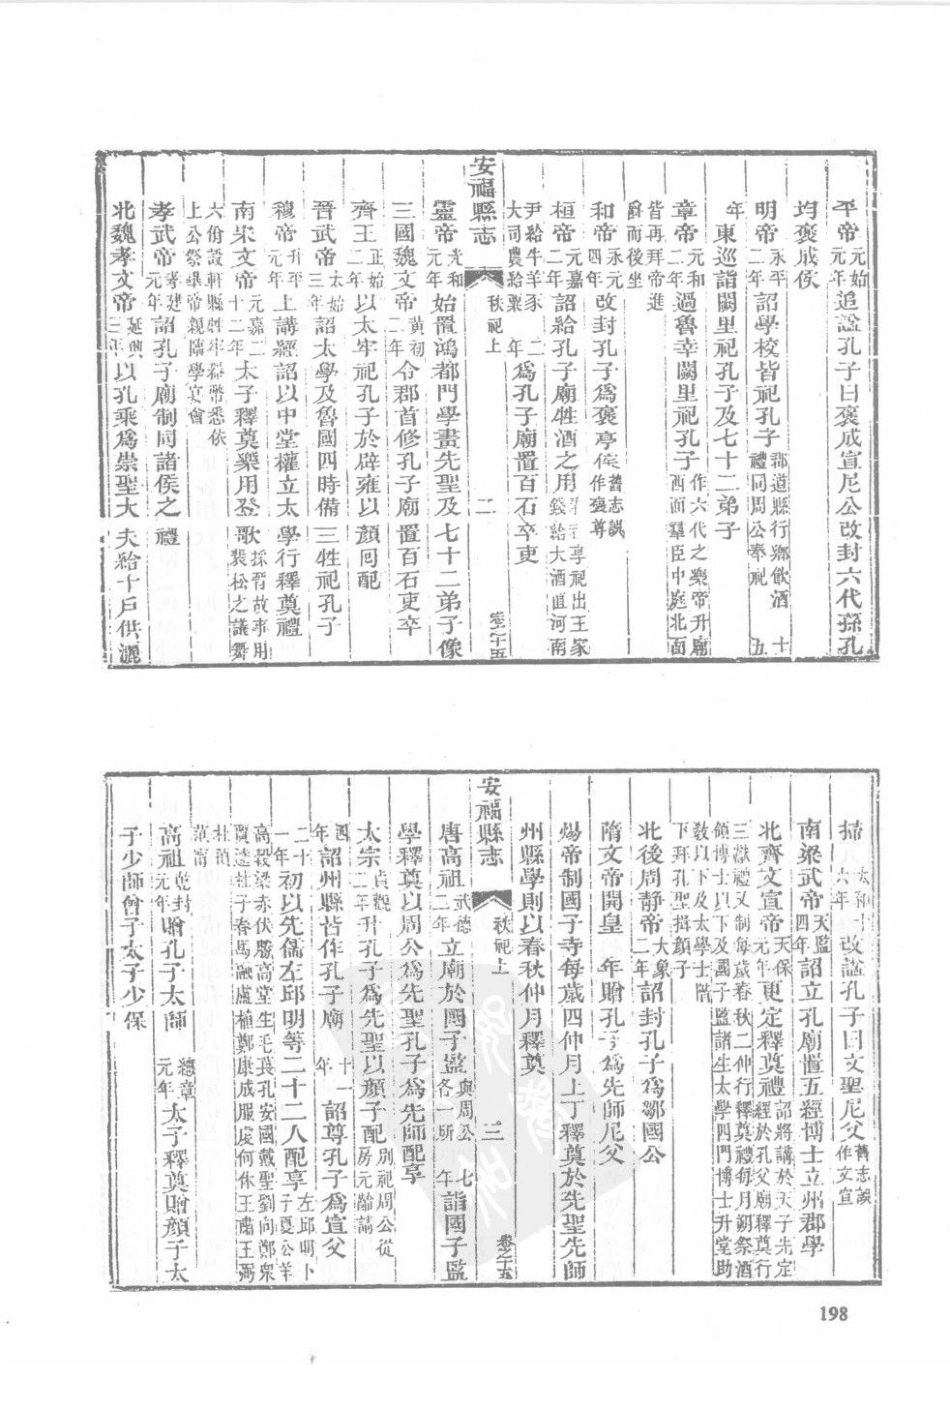 平帝元始元年追諡孔子曰褒成宣尼公改封六代孫孔
均褒成侯
明帝永平二年詔學校皆祀孔子郡道縣行鄉飲酒禮同周公奉祀十五
年東巡詣闕里祀孔子及七十二弟子
章帝元和二年過魯幸闕里祀孔子作六代之樂帝升廟西面羣臣中庭北面
皆再拜帝進爵而後坐
和帝永元四年改封孔子為褒亭侯舊志誤作褒尊
桓帝元嘉二年詔給孔子廟牲酒之用享祀出王家錢給大酒直河南
尹給牛羊豕大司農給粟二年為孔子廟置百石卒吏
安福縣志 秩祀上 二 卷之十五
靈帝光和元年始置鴻都門學畫先聖及七十二弟子像
三國魏文帝黃初二年令郡首修孔子廟置百石吏卒
齊王正始二年以太牢祀孔子於辟雍以顏囘配
晉武帝太始三年詔太學及魯國四時備三牲祀孔子
穆帝升平元年上講經詔以中堂權立太學行釋奠禮
南宋文帝元嘉二十二年太子釋奠樂用登歌採晉故事用裴松之議舞
六佾設軒縣牲牢器幣悉依上公祭畢帝親臨學宴會
孝武帝孝建元年詔孔子廟制同諸侯之禮
北魏孝文帝延興三年以孔乘為崇聖大夫給十戶供灑
掃太和十六年改諡孔子曰文聖尼父舊志誤作文宣
南梁武帝天監四年詔立孔廟置五經博士立州郡學
北齊文宣帝天保元年更定釋奠禮詔將講於天子先定經於孔父廟釋奠行
三獻禮又制每歲春秋二仲行釋奠禮每月朔祭酒領博士以下及國子監諸生太學四門博士升堂助
教以下及太學士階下拜孔聖揖顏子
北後周靜帝大象二年詔封孔子為鄒國公
隋文帝開皇 年贈孔子為先師尼父
煬帝制國子寺每歲四仲月上丁釋奠於先聖先師
州縣學則以春秋仲月釋奠
安福縣志 秩祀上 三 卷之十五
唐高祖武德二年立廟於國子監與周公各一所七年詣國子監
學釋奠以周公為先聖孔子為先師配享
太宗貞觀二年升孔子為先聖以顏子配別祀周公從房元齡議
四年詔州縣皆作孔子廟十一年詔尊孔子為宣父
二十一年初以先儒左邱明等二十二人配享左邱明卜子夏公羊
高穀梁赤伏勝高堂生毛萇孔安國戴聖劉向鄭眾賈逵杜子春馬融盧植鄭康成服虔何休王肅王弼
杜預范甯
高祖乾封元年贈孔子太師總章元年太子釋奠贈顏子太
子少師曾子太子少保
198